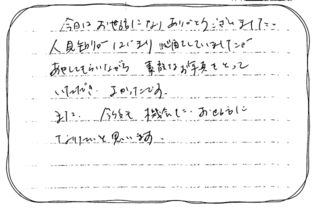 今日はお世話になりありがとうございました。
人見知りがはじまり心配していましたが
あやしてもらいながら 素敵なお写真をとって
いただき よかったです。
また 機会に お世話に
なりたいと思います。